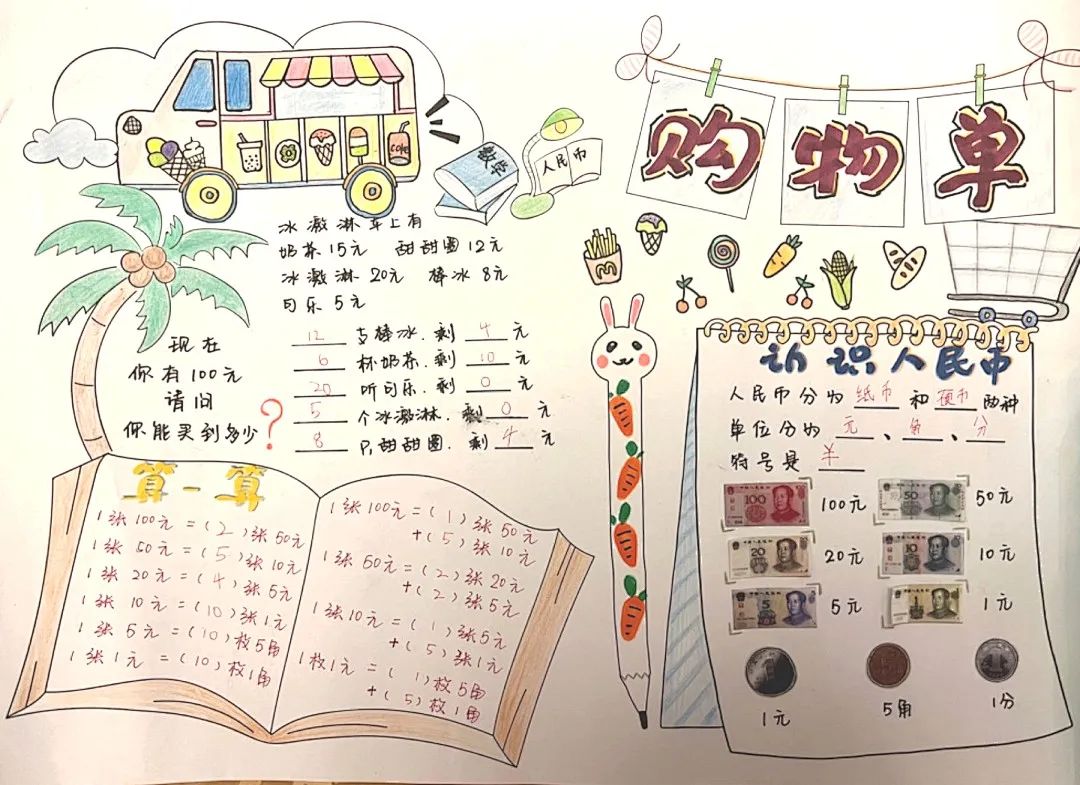 购物单
数学
人民币
coke
冰激淋车上有
奶茶15元 甜甜圈12元
冰激淋20元 棒冰8元
可乐5元
现在
你有100元
请问
你能买到多少?
12支棒冰.剩4元
6杯奶茶.剩10元
20听可乐.剩0元
5个冰激淋.剩0元
8个甜甜圈.剩4元
算一算
1张100元=(2)张50元
1张50元=(5)张10元
1张20元=(4)张5元
1张10元=(10)张1元
1张5元=(10)枚5角
1张1元=(10)枚1角
1张100元=(1)张50元
+(5)张10元
1张50元=(2)张20元
+(2)张5元
1张10元=(1)张5元
+(5)张1元
1枚1元=(1)枚5角
+(5)枚1角
认识人民币
人民币分为纸币和硬币两种
单位分为元、角、分
符号是¥
100 100元 50 50元
20 20元 10 10元
5 5元 1元
1元 5角 1分